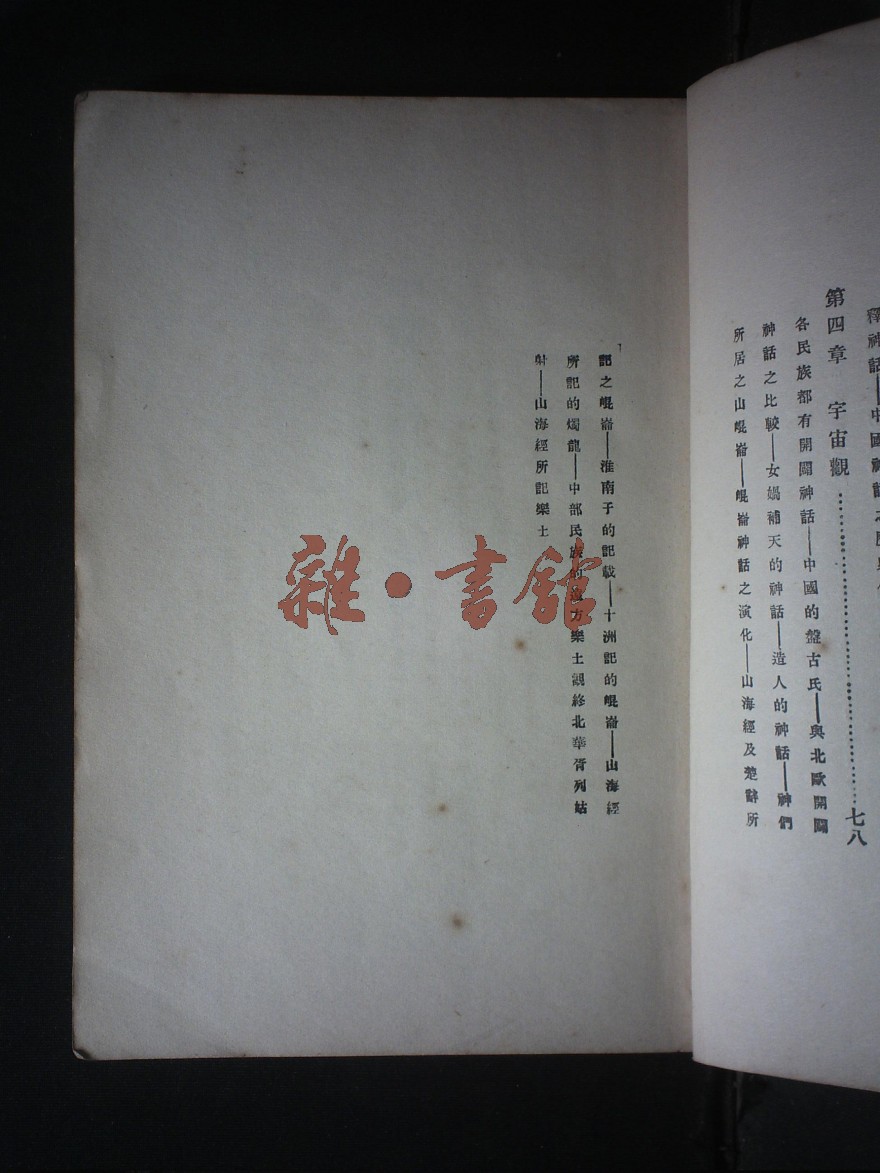 釋神話——中國神話之
第四章　宇宙觀……………………七八
各民族都有開闢神話——中國的盤古氏——與北歐開闢
神話之比較——女媧補天的神話——造人的神話——神們
所居之山崐崙——崐崙神話之演化——山海經及楚辭所
記之崐崙——淮南子的記載——十洲記的崐崙——山海經
所記的燭龍——中部民族的遠方樂土觀終北華胥列姑
射——山海經所記樂土
雜·書館